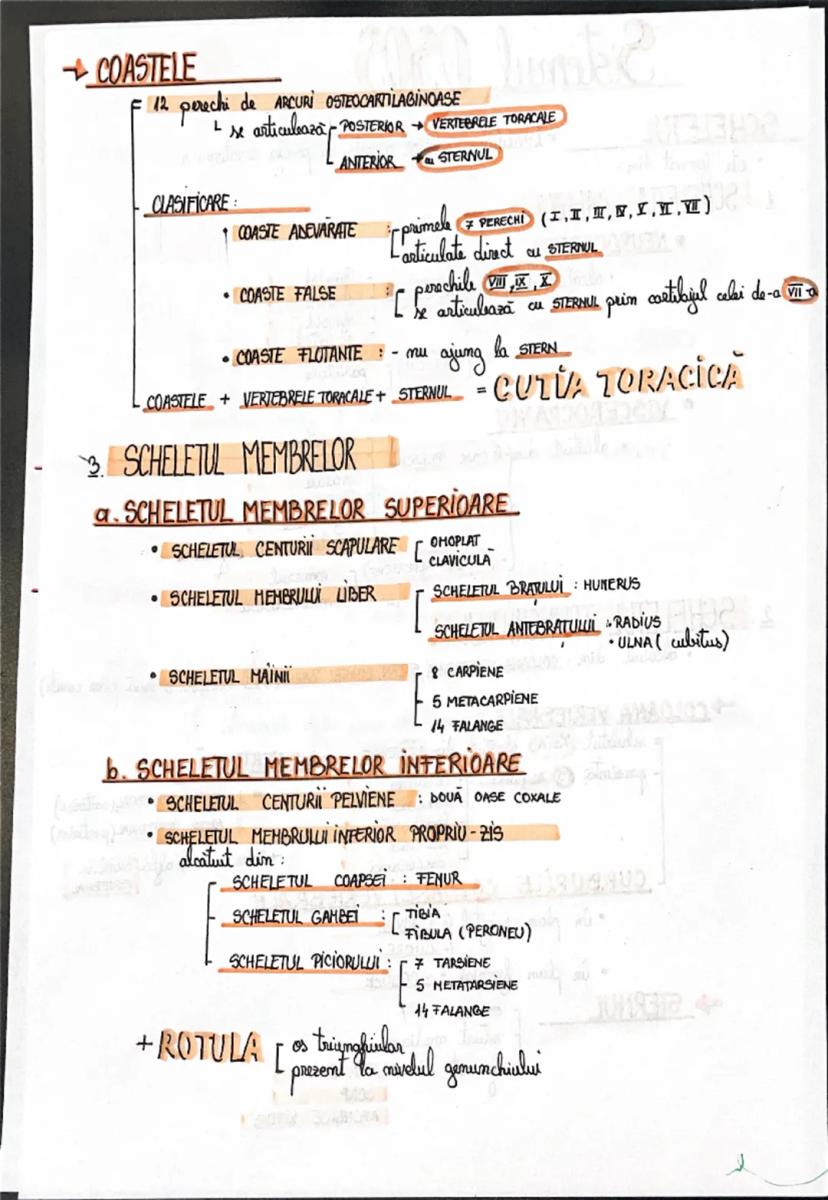 → COASTELE
12 perechi de ARCURI OSTEOCARTILAGINOASE
se articulează POSTERIOR → VERTEBRELE TORACALE
ANTERIOR → cu STERNUL
CLASIFICARE:
• COASTE ADEVĂRATE: primele 7 PERECHI (I, II, III, IV, V, VI, VII)
articulate direct cu STERNUL
• COASTE FALSE: perechile VIII, IX, X
se articulează cu STERNUL prin cartilajul celei de-a VII-a
• COASTE FLOTANTE: - nu ajung la STERN
COASTELE + VERTEBRELE TORACALE + STERNUL = CUTIA TORACICĂ
3. SCHELETUL MEMBRELOR
a. SCHELETUL MEMBRELOR SUPERIOARE
• SCHELETUL CENTURII SCAPULARE OMOPLAT
CLAVICULĂ
• SCHELETUL MEMBRULUI LIBER SCHELETUL BRAȚULUI: HUMERUS
SCHELETUL ANTEBRAȚULUI: • RADIUS
• ULNA (cubitus)
• SCHELETUL MÂINII 8 CARPIENE
5 METACARPIENE
14 FALANGE
b. SCHELETUL MEMBRELOR INFERIOARE
• SCHELETUL CENTURII PELVIENE: DOUĂ OASE COXALE
• SCHELETUL MEMBRULUI INFERIOR PROPRIU-ZIS
alcătuit din:
SCHELETUL COAPSEI: FEMUR
SCHELETUL GAMBEI: TIBIA
FIBULA (PERONEU)
SCHELETUL PICIORULUI: 7 TARSIENE
5 METATARSIENE
14 FALANGE
+ ROTULA os triunghiular
prezent la nivelul genunchiului